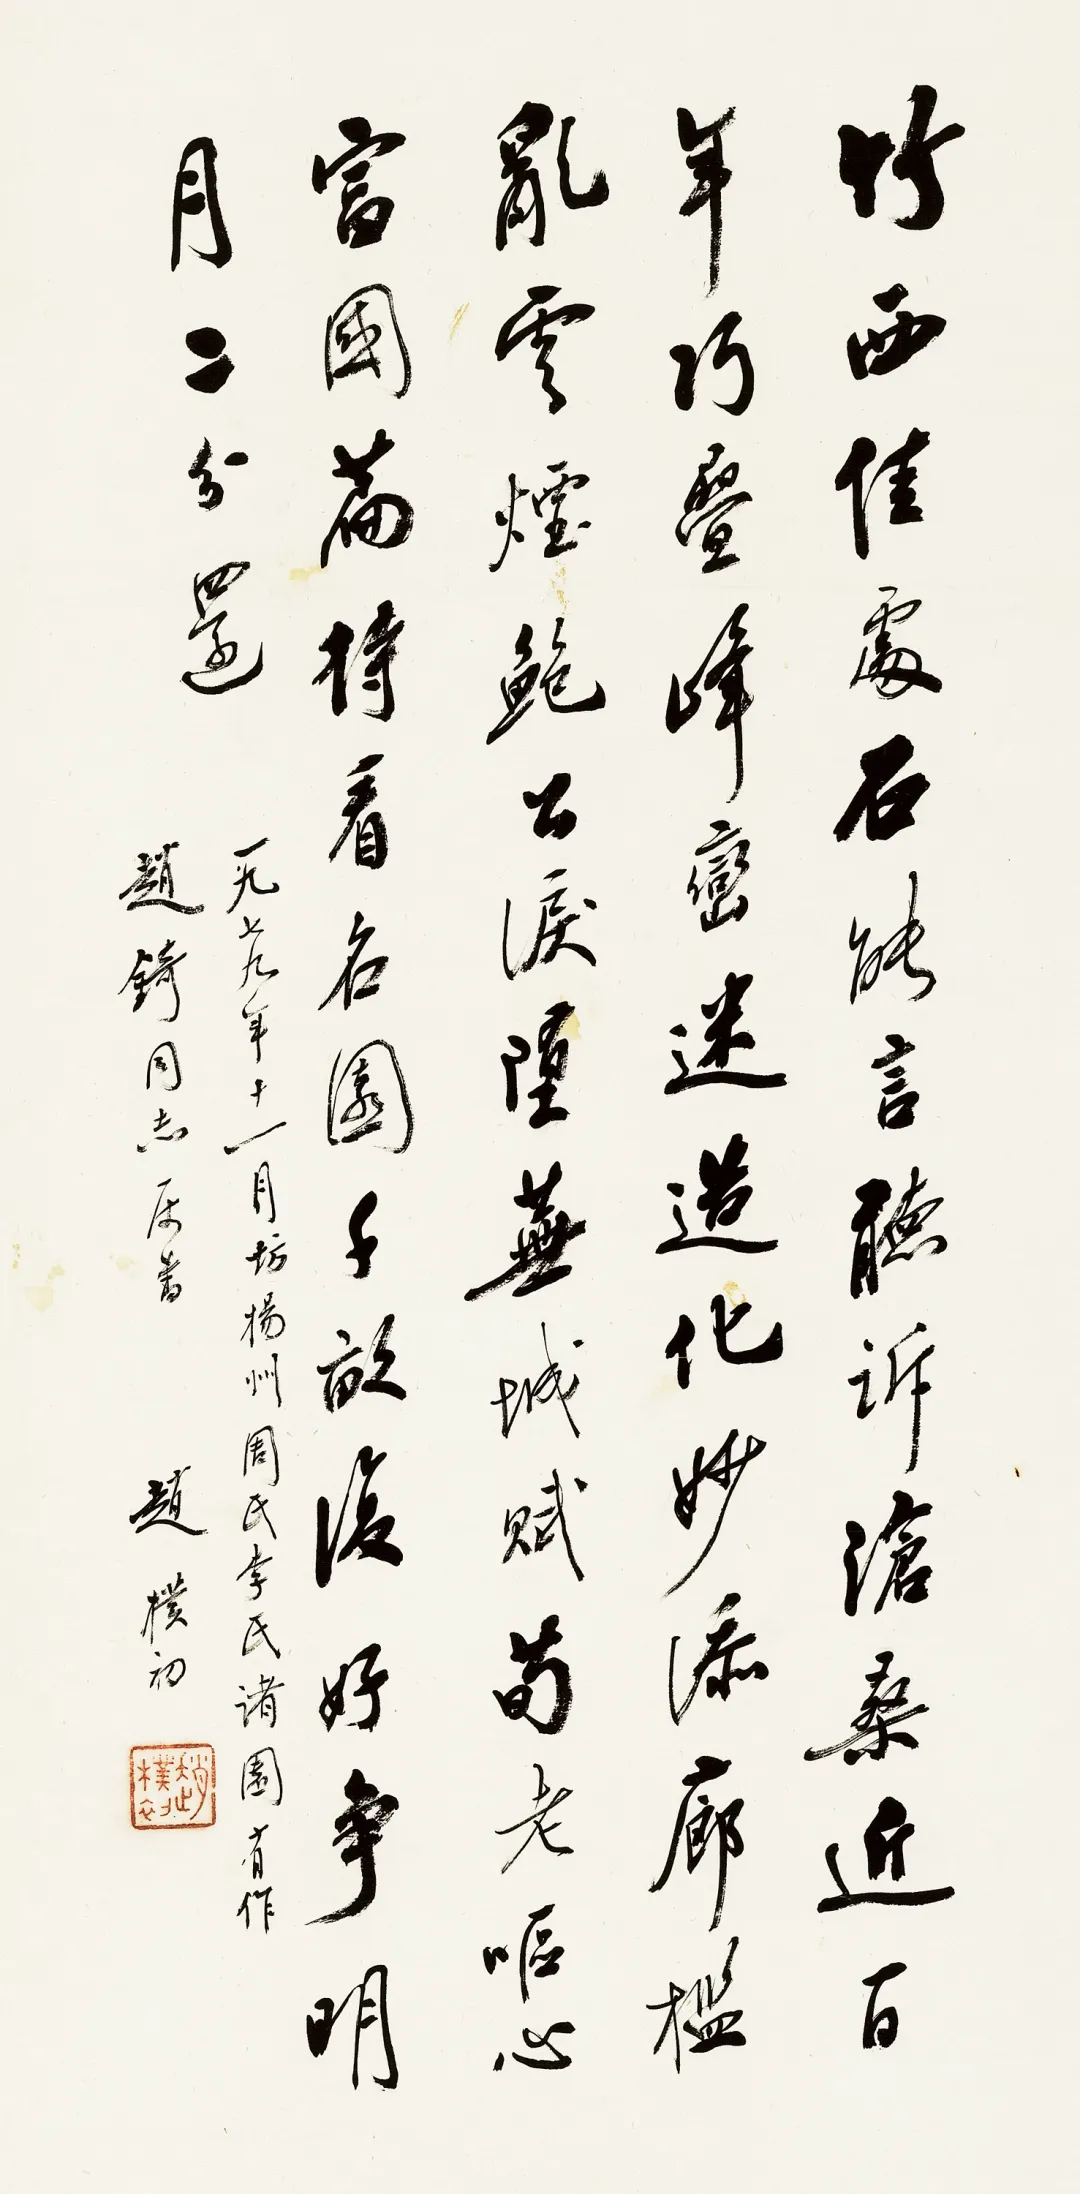 竹西佳處石能言聽訴滄桑近百
年巧疊峰巒迷造化妙添廊檻
亂雲煙鮑公淚墮蕪城賦荀老嘔心
富國篇待看名園千畝復好爭明
月二分還
一九七九年十一月坊揚州周氏李氏诸園有作
趙錡同志屬書
趙樸初
趙樸初